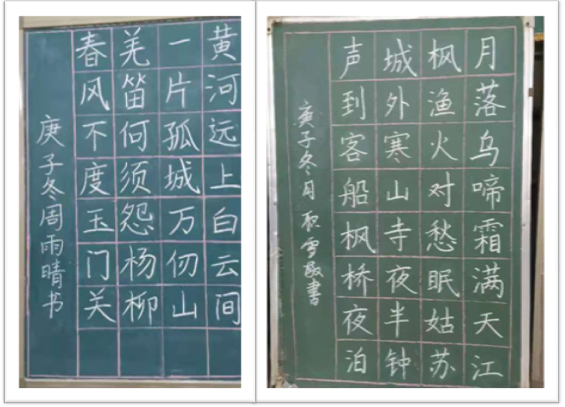 黄河远上白云间
一片孤城万仞山
羌笛何须怨杨柳
春风不度玉门关
庚子冬周雨晴书
月落乌啼霜满天江
枫渔火对愁眠姑苏
城外寒山寺夜半钟
声到客船枫桥夜泊
庚子冬月
書